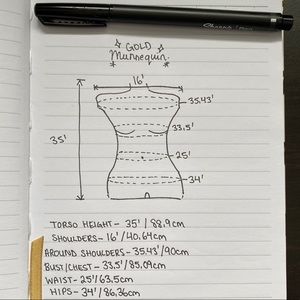 Sharpie
GOLD
Mannequin
16'
35.43'
33.5'
35'
25'
34'
TORSO HEIGHT - 35'/88.9cm
SHOULDERS - 16'/40.64cm
AROUND SHOULDERS - 35.43'/90cm
BUST/CHEST - 33.5'/85.09cm
WAIST - 25'/63.5cm
HIPS - 34'/86.36cm